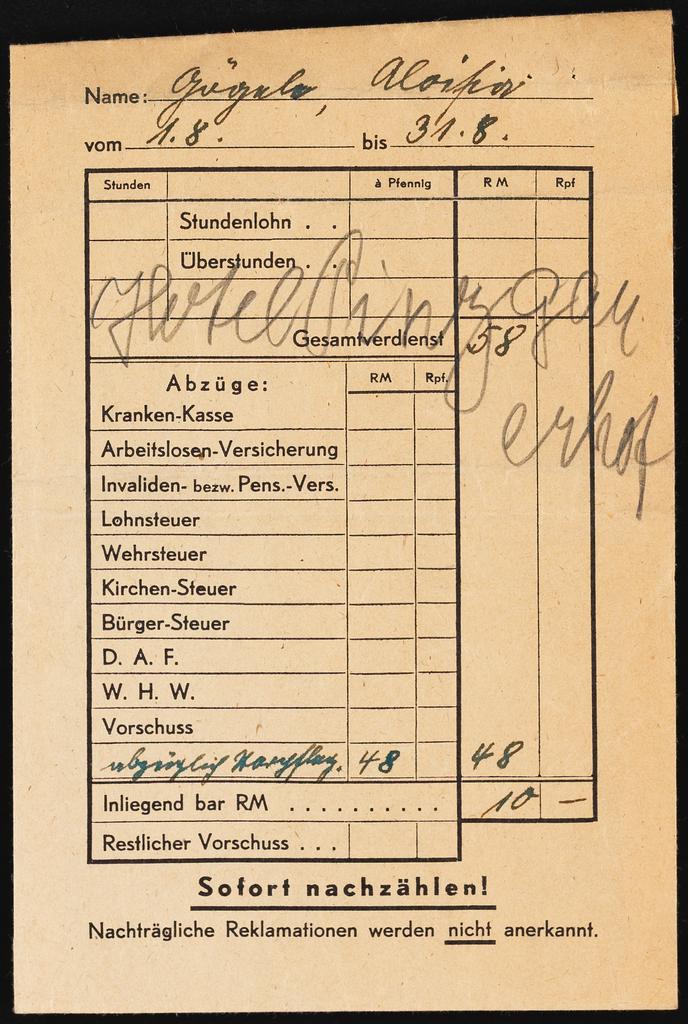 Name: Gögele, Aloisia
vom 1.8. bis 31.8.
Stunden à Pfennig RM Rpf
Stundenlohn . .
Überstunden . .
Hotel Pinzgau
Gesamtverdienst 58
erhof
Abzüge: RM Rpf.
Kranken-Kasse
Arbeitslosen-Versicherung
Invaliden- bezw. Pens.-Vers.
Lohnsteuer
Wehrsteuer
Kirchen-Steuer
Bürger-Steuer
D. A. F.
W. H. W.
Vorschuss
abzüglich Verpfleg. 48 48
Inliegend bar RM . . . . . . . . . . 10 —
Restlicher Vorschuss . . .
Sofort nachzählen!
Nachträgliche Reklamationen werden nicht anerkannt.